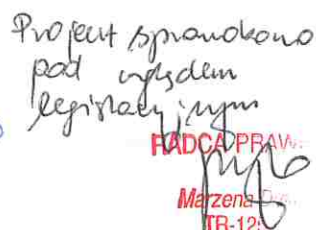 Projekt sprawdzono
pod względem
legislacyjnym
RADCA PRAW
Marzena
TR-12